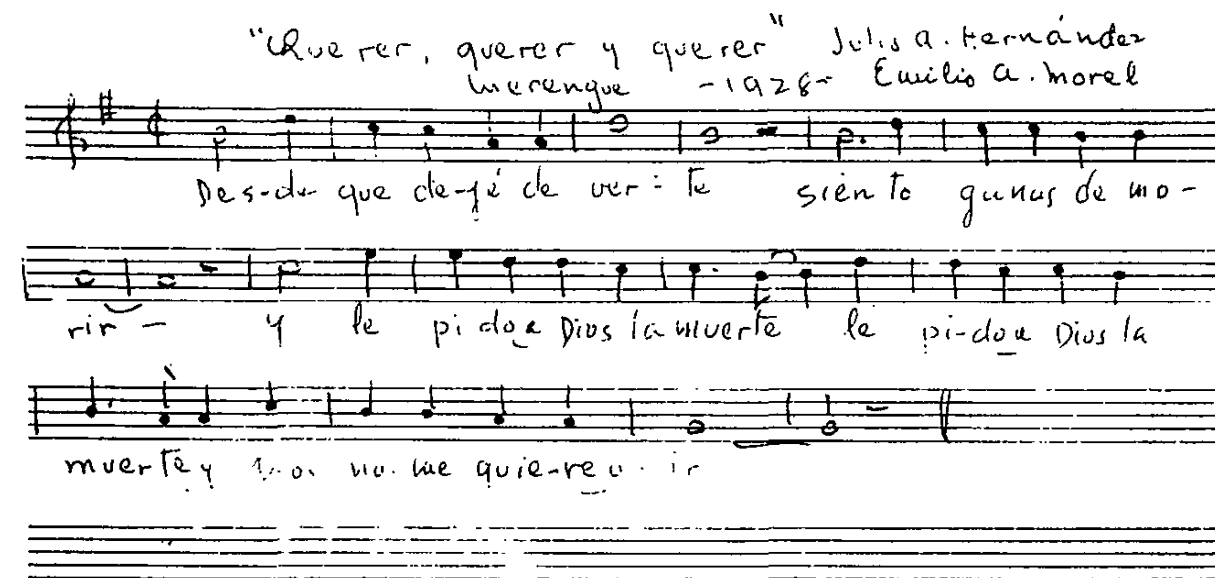 "Querer, querer y querer" Julio A. Hernández
Merengue -1928- Emilio A. Morel
Des-de que de-jé de ver-te siento ganas de mo-
rir- y le pi do a Dios la muerte le pi-do a Dios la
muerte y no me quie-re o-ir